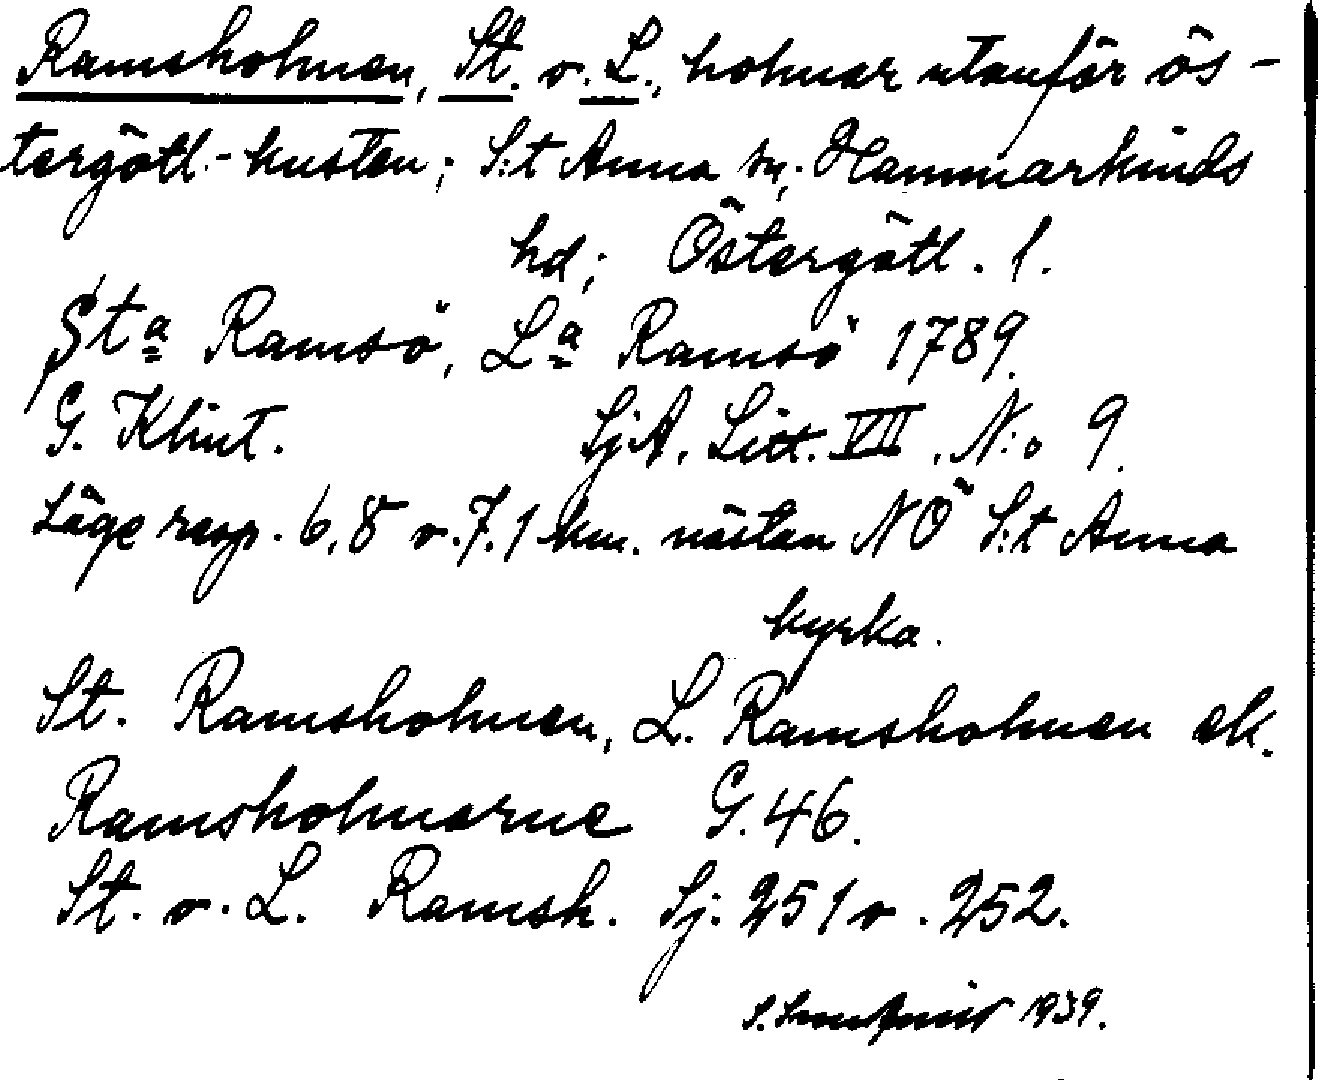 Ramsholmen, St. o. L., holmar utanför ös-
tergötl.-kusten; S:t Anna sn; Hammarkinds
hd; Östergötl. l.
Sta Ramsö, La Ramsö 1789.
G. Klint. SjA. Litt. VII. N:o 9.
Läge resp. 6,8 o. 7,1 km. nästan NÖ S:t Anna
kyrka.
St. Ramsholmen, L. Ramsholmen ek.
Ramsholmarne G. 46.
St. o. L. Ramsh. Sj. 251 o. 252.
1939.